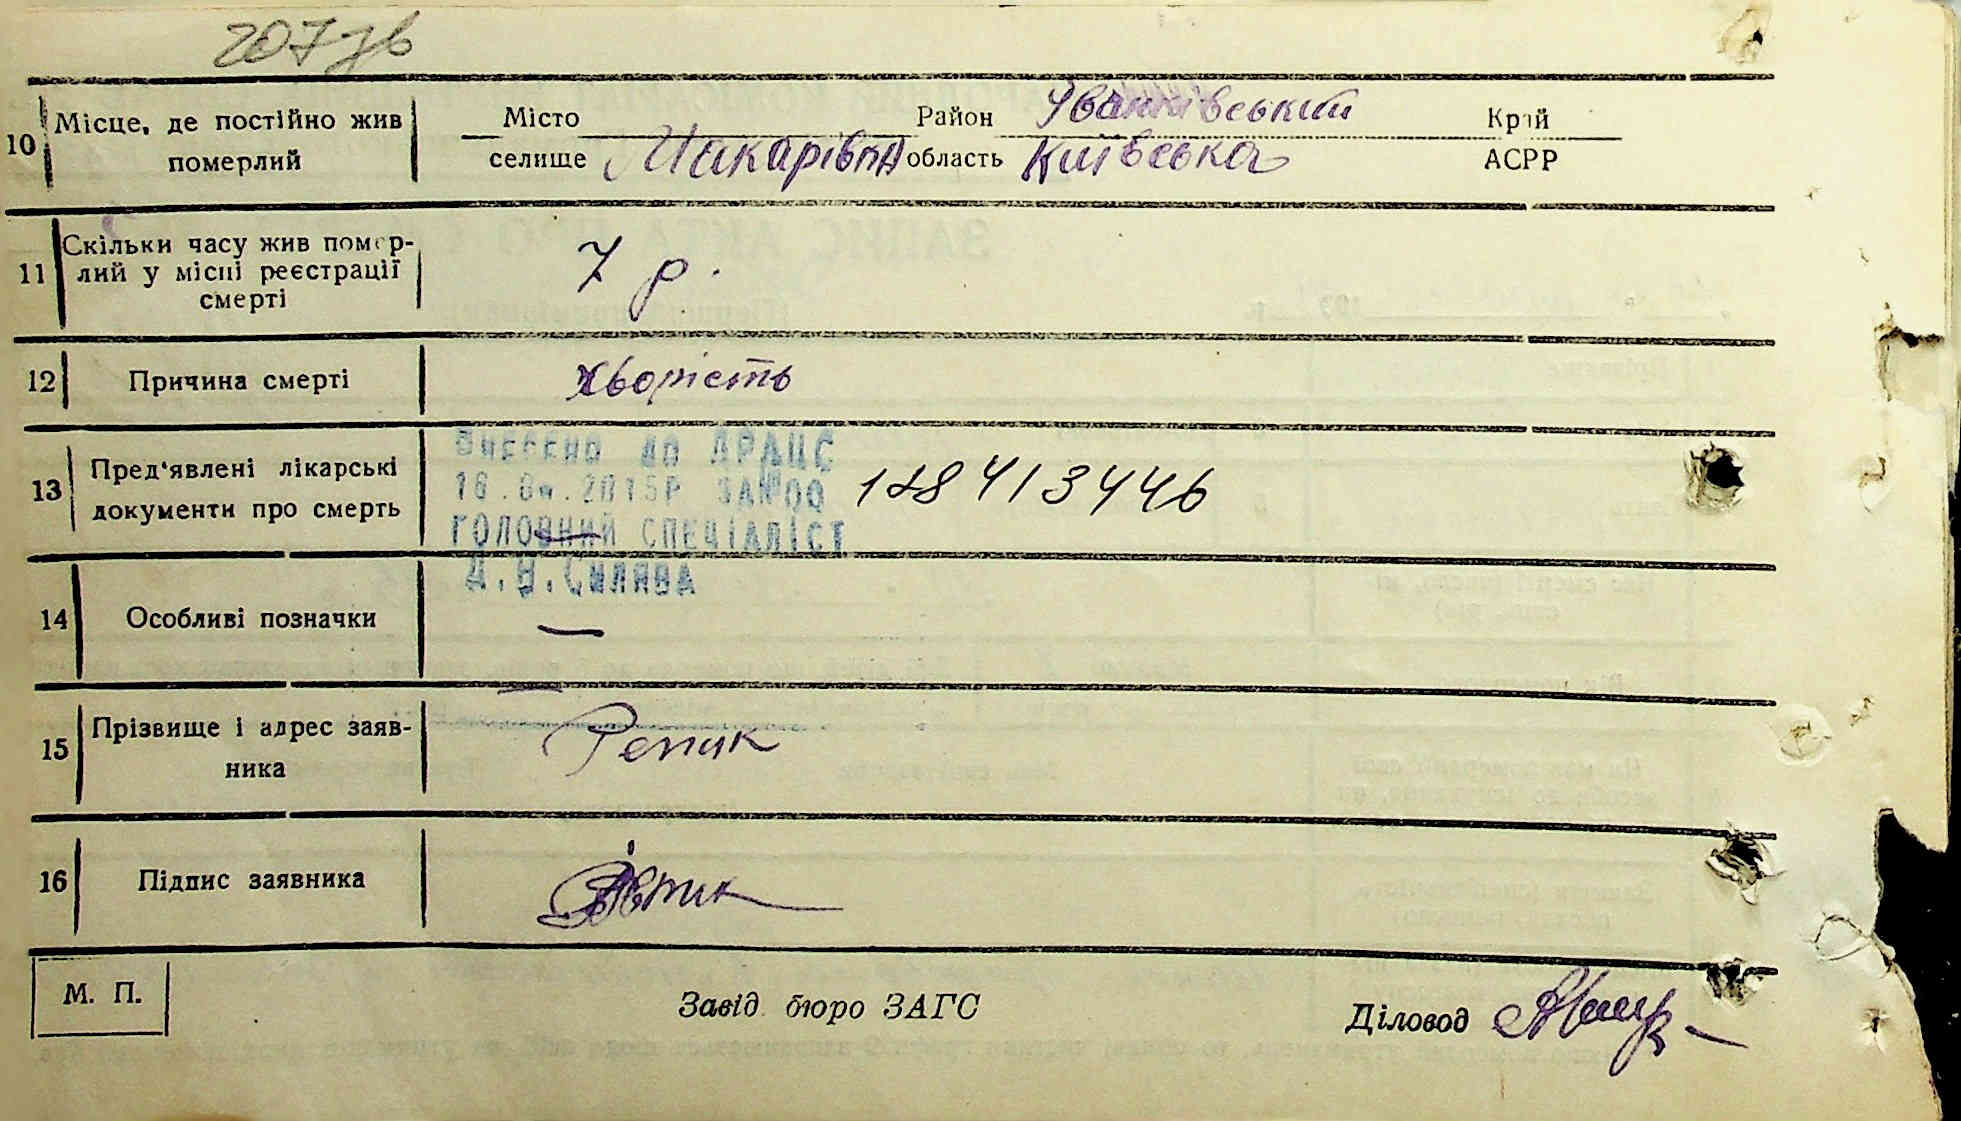 207 зв
10 Місце, де постійно жив померлий Місто Район Іванківський Край
селище Макарівка область Київська АСРР
11 Скільки часу жив померлий у місці реєстрації смерті 7 р.
12 Причина смерті хворість
13 Пред'явлені лікарські документи про смерть
ВНЕСЕНО ДО ДРАЦС
2015Р ЗА№00 128413446
ГОЛОВНИЙ СПЕЦІАЛІСТ
14 Особливі позначки —
15 Прізвище і адрес заявника Репик
16 Підпис заявника
М. П. Завід. бюро ЗАГС Діловод